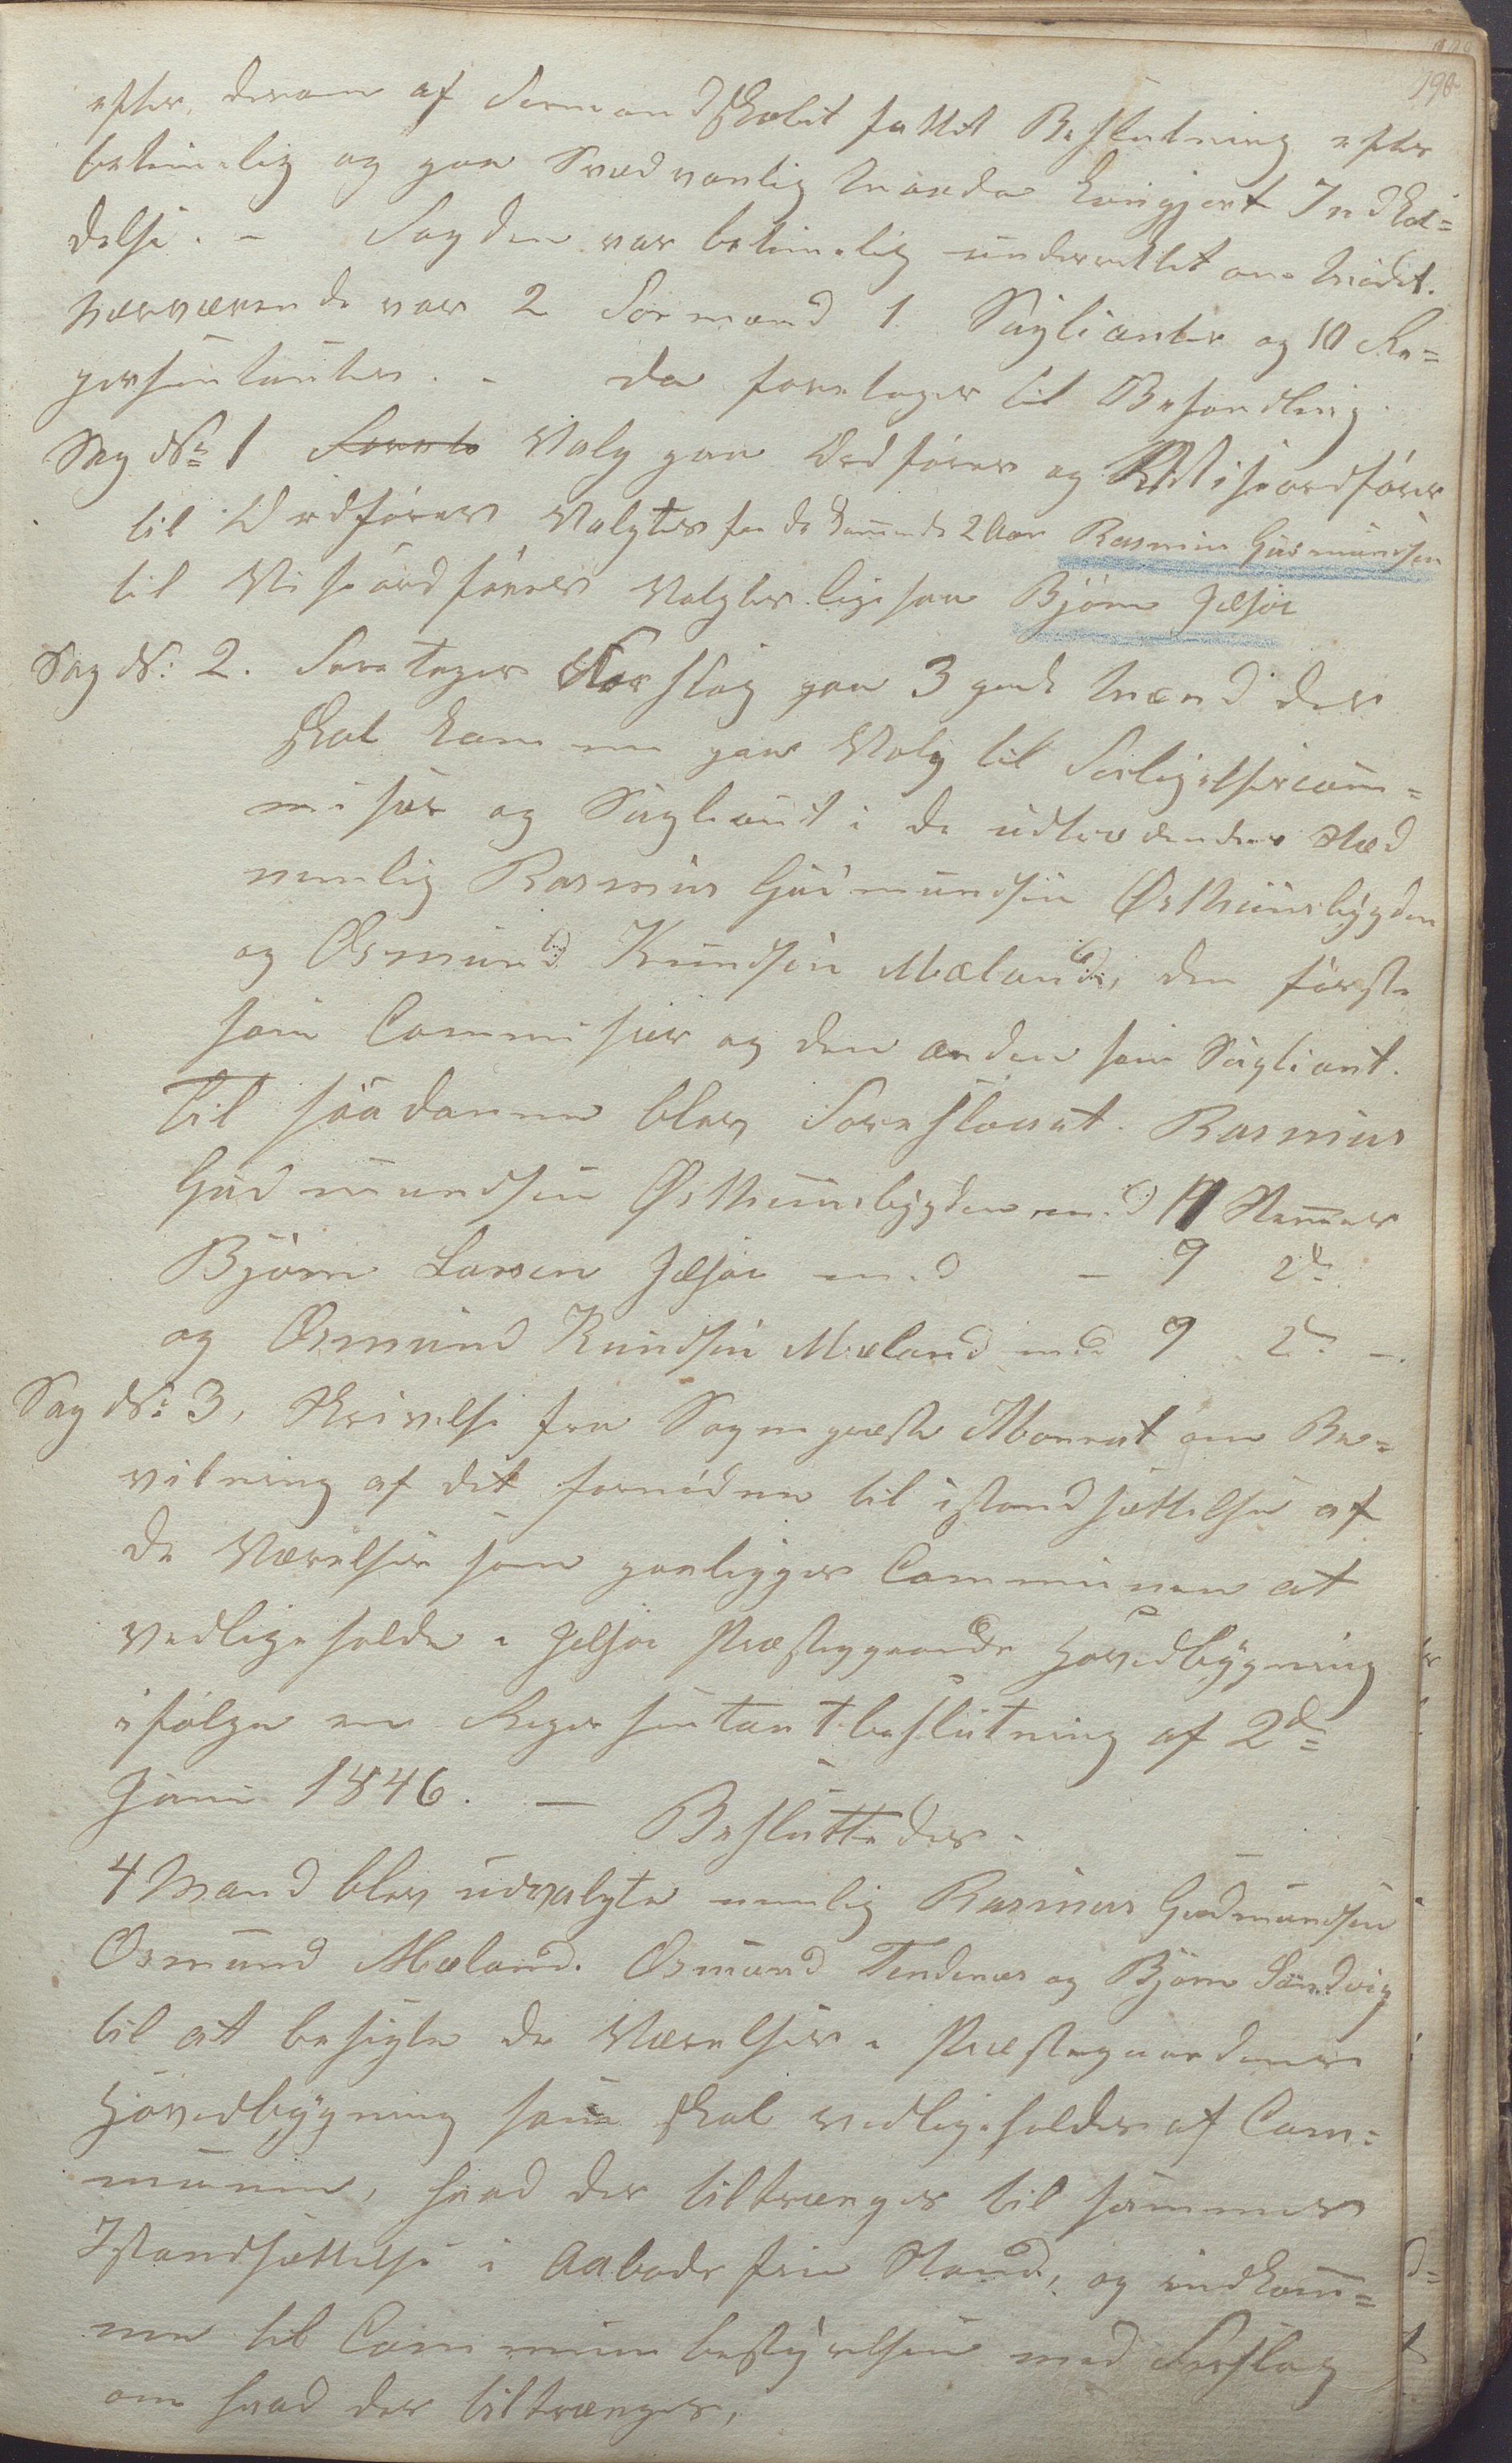 190
efter derom af Formandskabet fattet Beslutning efter
betimelig og paa Sædvanlig Maade kungjort Indkal=
delse. - Fogden var betimelig underrettet om Mødet.
Nærværende var 2 Formænd 1 Suplianter og 10 Re=
persentanter. - da foretages til Behandling.
Sag No 1 Foreto Valg paa Ordfører og Viseordfører
til Ordfører Valgtes for de kommende 2 Aar Rasmus Gudmundsen
til Viseordfører Valgtes ligesaa Bjørn Jelsøe
Sag No: 2. Foretages Forslag paa 3 gode Mænd der
skal komme paa Valg til Forligelsescom=
misær og Supleant i de udtrædendes Stæd
nemlig Rasmus Gudmundsen Østhuusbygden
og Osmund Knudsen Mæland, den første
som Commisær og den anden som Supliant.
Til saadanne blev Foreslaaet. Rasmus
Gudmundsen Østhuusbygden med 11 Stemmer
Bjørn Larsen Jelsøe med - 9 do
og Osmund Knudsen Mæland med 9 do -.
Sag No: 3, Skrivelse fra Sognepræst Monrat om Be=
vilning af det fornødne til istandsættelse af
de Værelser som paaligger Communen at
vedligeholde i Jelsøe Præstegaards Hovedbygning
ifølge en Repersentantbeslutning af 2de
Juni 1846. — Besluttedes.
4 Mand blev udvalgte nemlig Rasmus Gudmundsen
Osmund Mæland. Osmund Tendenes og Bjørn Sandvig
til at besigte de Værelser i Præstegaardens
Hovedbygning som skal vedligeholdes af Com=
munen, hvad der tiltrænges til sammes
Istandsættelse i Aabodsfri Stand, og indkom=
me til Communebestyrelsen med Forslag
om hvad der tiltrænges,